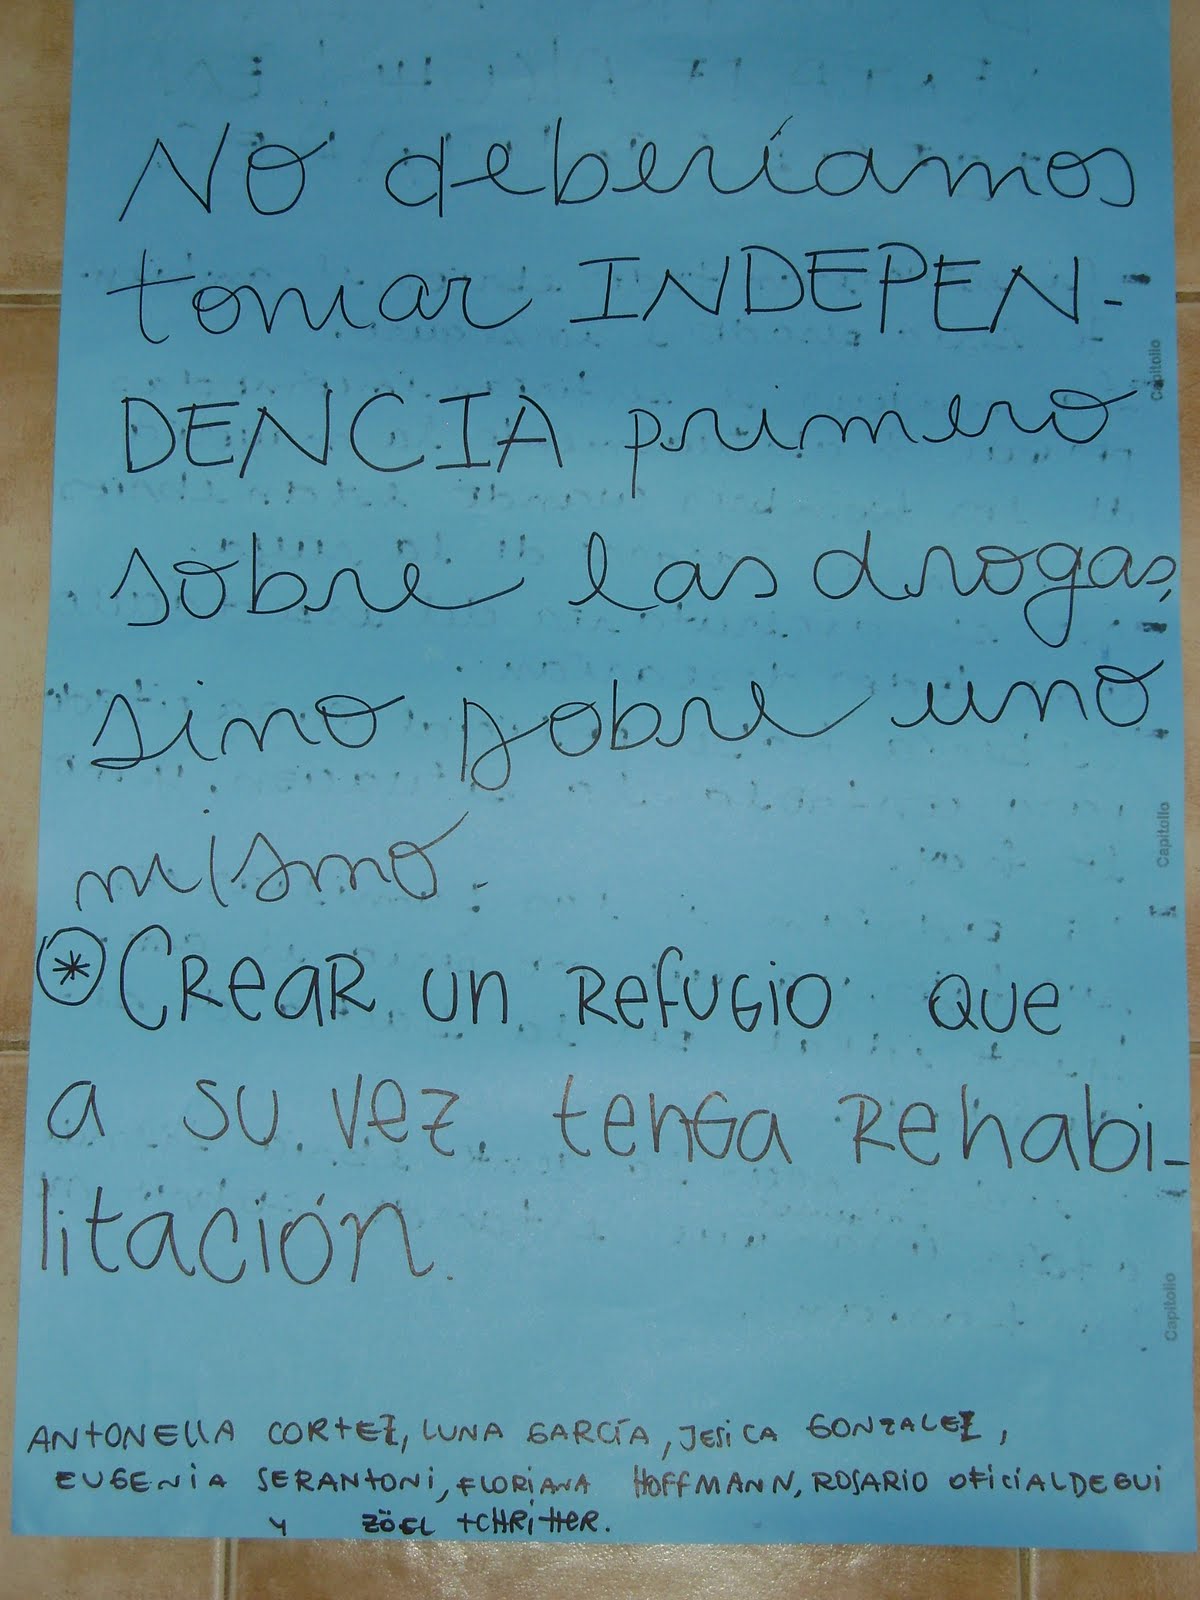 No deberíamos
tomar INDEPEN-
DENCIA primero
sobre las drogas,
sino sobre uno
mismo.
* CReaR un RefuGio que
a su vez tenGa Rehabi-
litación.
ANTONELLA CORTEZ, LUNA GARCÍA, JESiCA GONZALEZ,
EUGENiA SERANTONi, FLORIANA HOFFMANN, ROSARIO OFICIALDEGUI
Y ZÖEL TCHRiTTER.
Capitolio
Capitolio
Capitolio